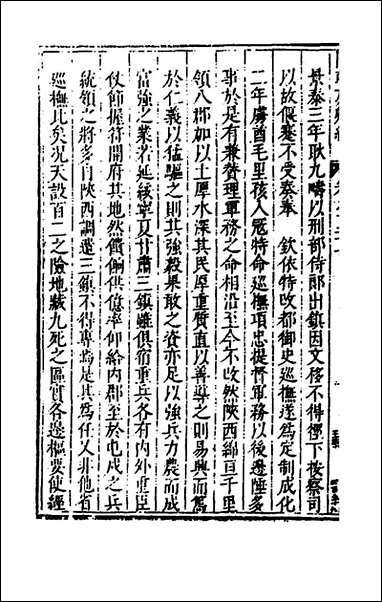 景泰三年耿九疇以刑部侍郎出鎮因文移不得徑下按察司
以故偃蹇不受奏奉　欽依特改都御史巡撫遂為定制成化
二年虜酋毛里孩入寇特命巡撫項忠提督軍務以後邊陲多
事於是有兼贊理軍務之命相沿至今不改然陝西綿亘千里
領八郡加以土厚水深其民厚重質直以善導之則易興而篤
於仁義以猛驅之則其強毅果敢之資亦足以強兵力農而成
富強之業若延綏寧夏甘肅三鎮雖俱宿重兵各有内外重臣
仗節握符開府其地然償餉供億率仰給内郡至於屯戍之兵
統領之將多自陝西調遣三鎮不得專焉是其為任又非他省
巡撫比矣况天設百二之險地藏九死之區實各邊樞要使經